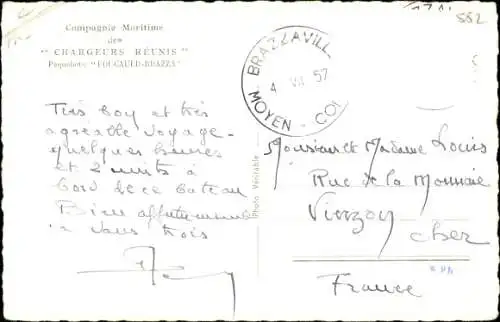 Compagnie Maritime
des
"CHARGEURS RÉUNIS"
Paquebots "FOUCAULD-BRAZZA"
552
BRAZZAVILL
4 VII 57
MOYEN - CO
Très bon et très
agréable voyage -
quelques heures
et 2 nuits à
bord de ce bateau
Bien affectueusement
à vous trois
Photo Véritable
Monsieur et Madame Louis
Rue de la Monnaie
Vierzon
Cher
France